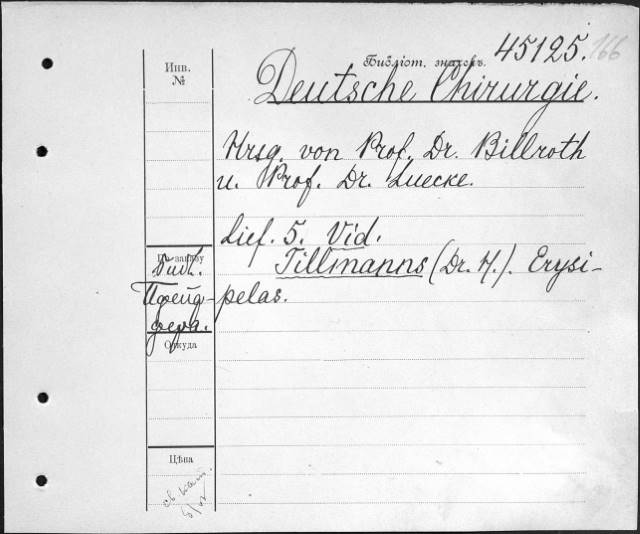 Библіот. значекъ. 45125. 166
Инв.
№
Deutsche Chirurgie.
Hrsg. von Prof. Dr. Billroth
u. Prof. Dr. Luecke.
Lief. 5. Vid.
Tillmanns (Dr. H.). Erysi-
pelas.
По заказу
Библ.
Пфейф-
фера.
Откуда
Цѣна